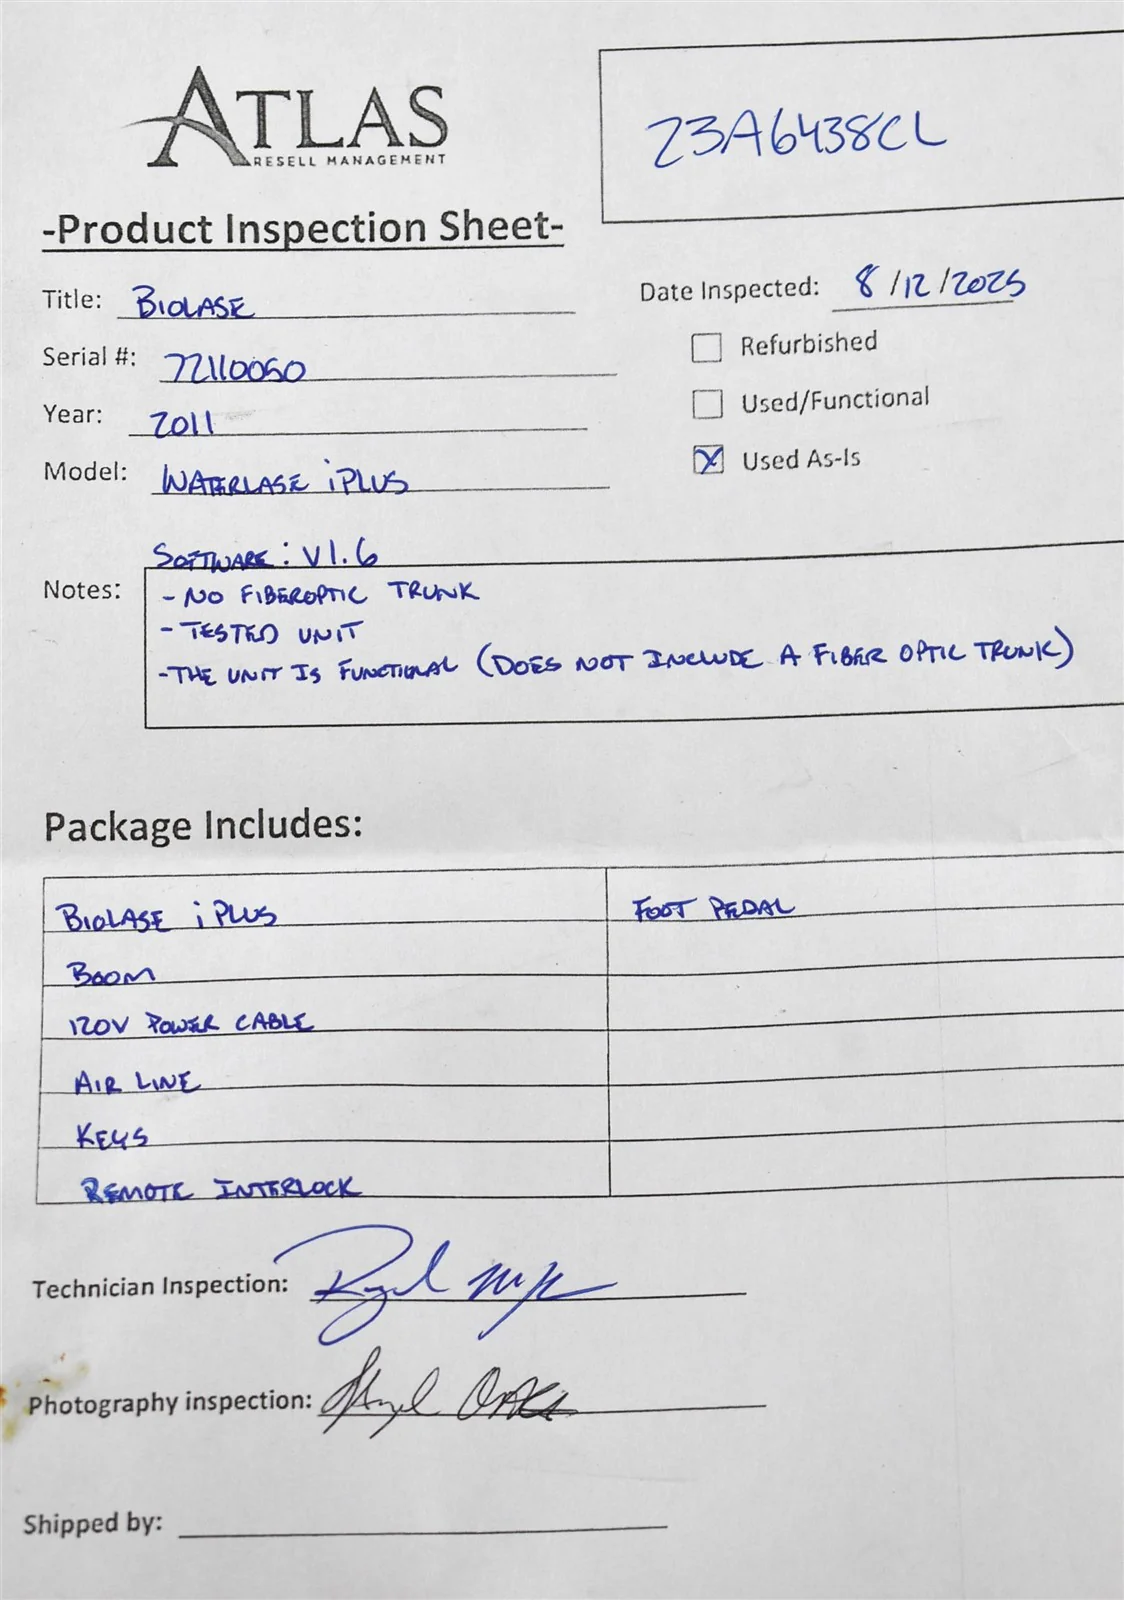 ATLAS
RESELL MANAGEMENT
23A6438CL
-Product Inspection Sheet-
Title: BIOLASE
Date Inspected: 8/12/2025
Serial #: 72110050
Refurbished
Year: 2011
Used/Functional
Model: WATERLASE iPLUS
Used As-Is
SOFTWARE: V1.6
Notes:
- NO FIBEROPTIC TRUNK
- TESTED UNIT
- THE UNIT IS FUNCTIONAL (DOES NOT INCLUDE A FIBER OPTIC TRUNK)
Package Includes:
BIOLASE iPLUS
FOOT PEDAL
BOOM
120V POWER CABLE
AIR LINE
KEYS
REMOTE INTERLOCK
Technician Inspection:
Photography inspection:
Shipped by: